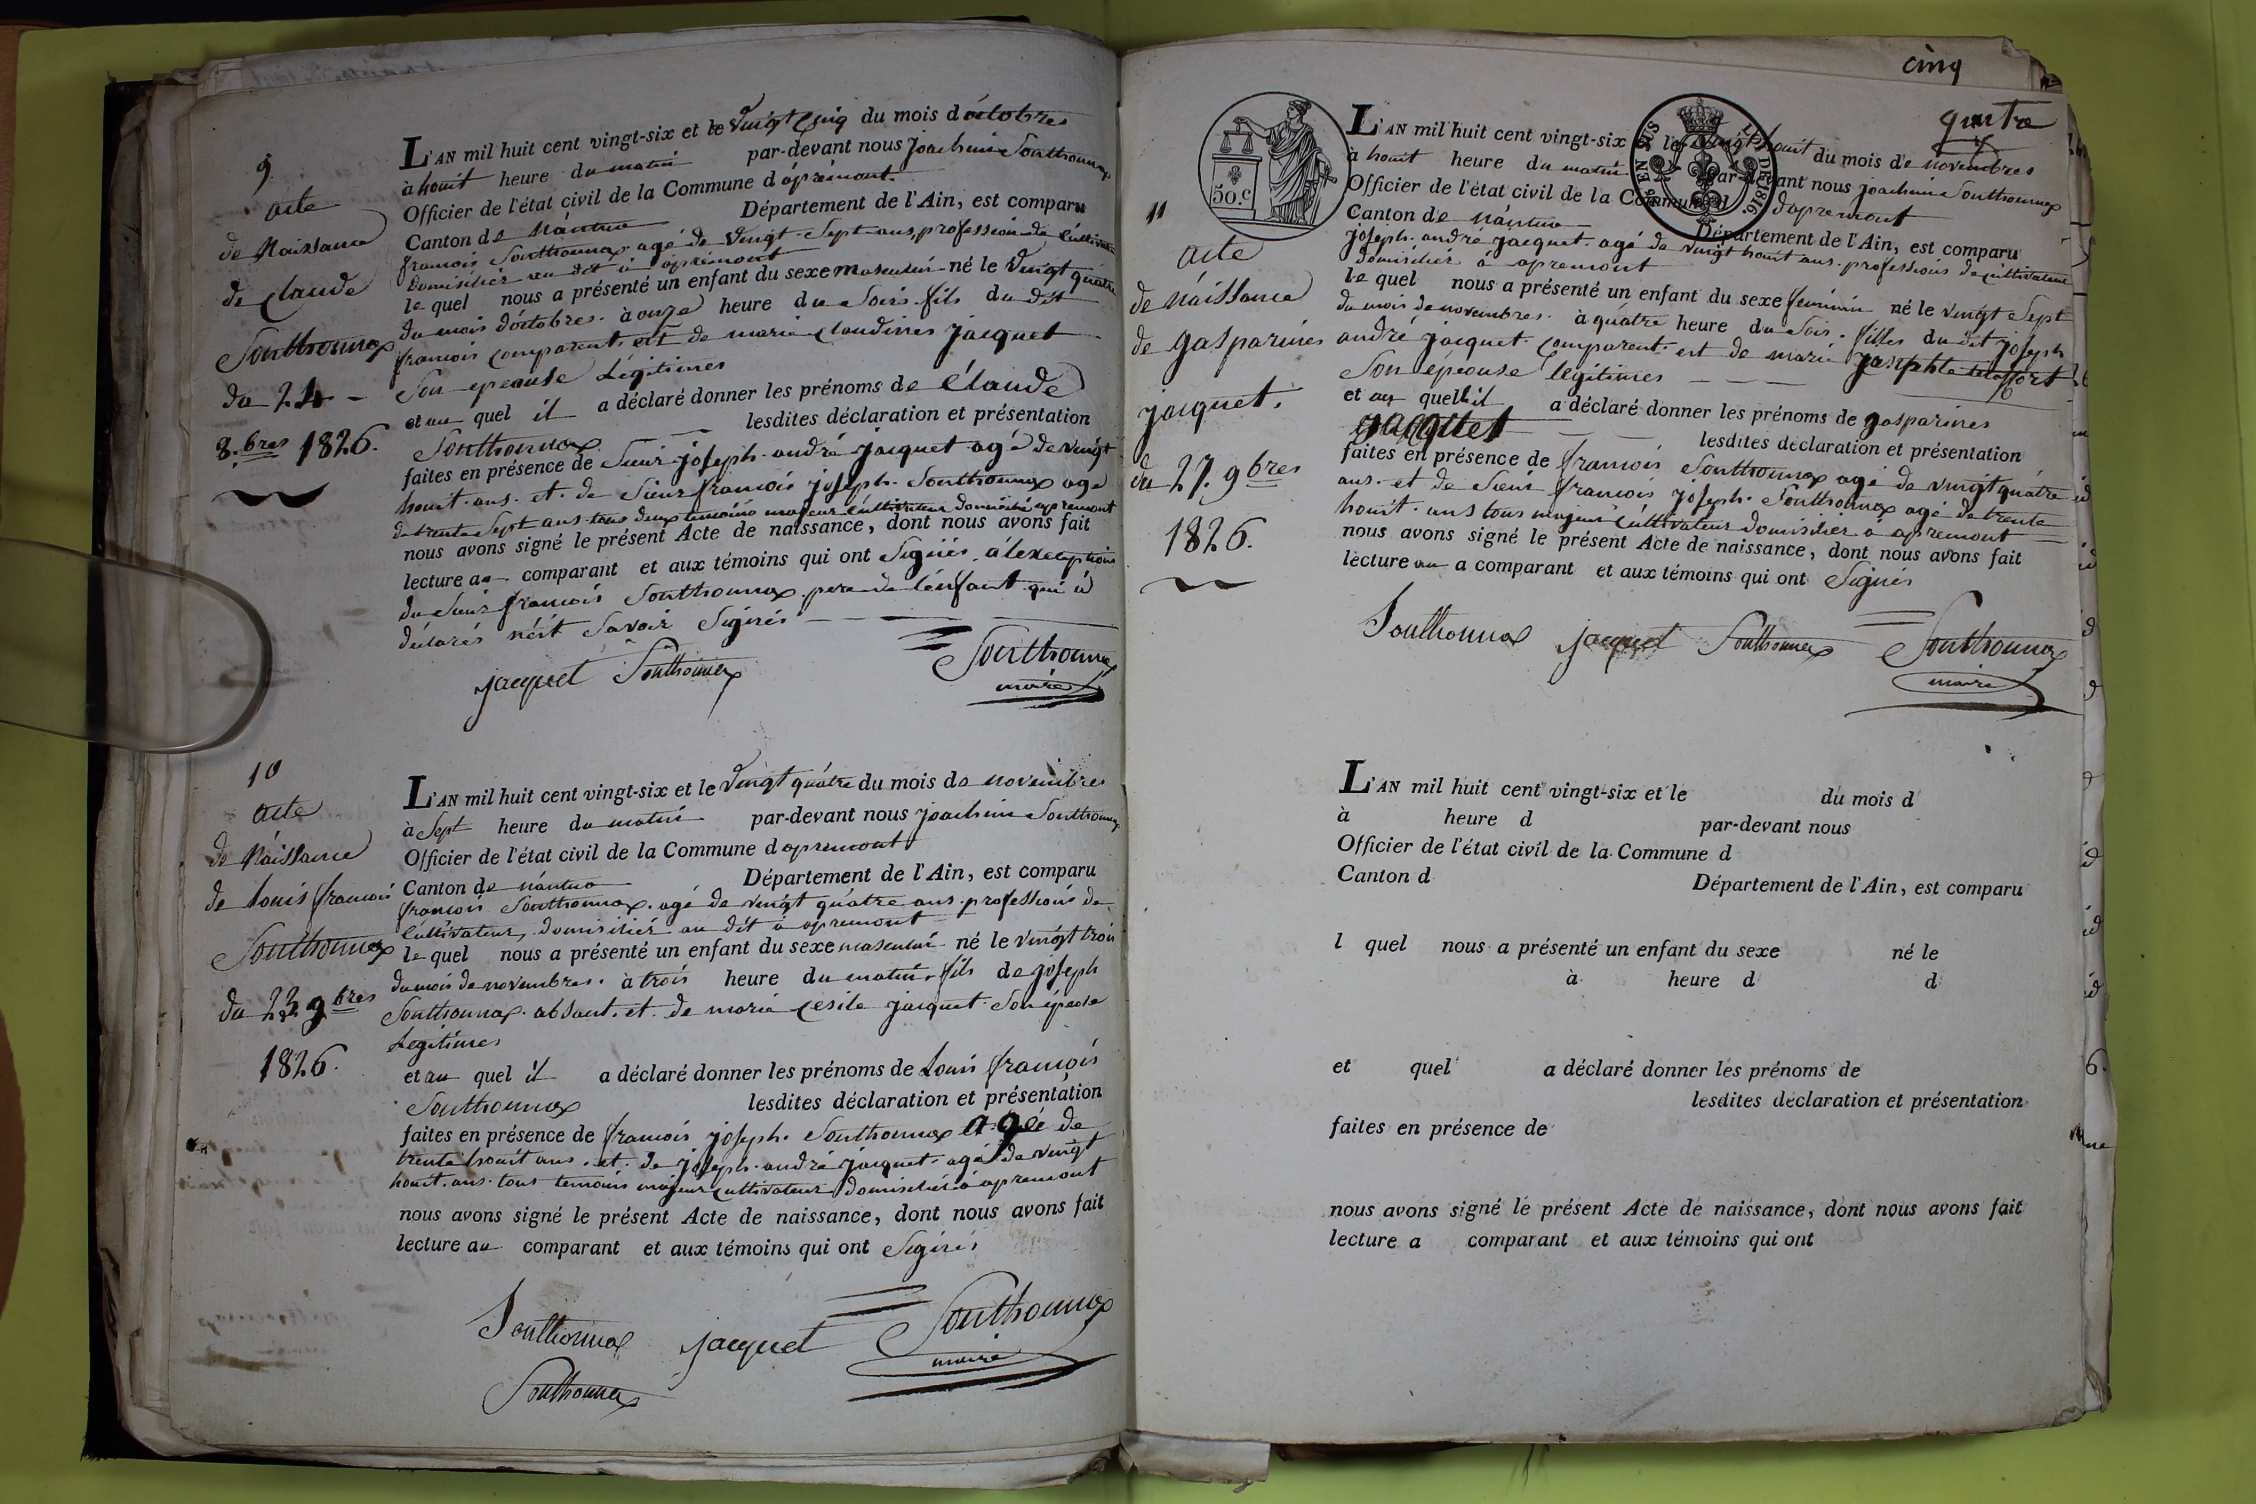 9
acte
de Naissance
de claude
Southonnax
du 24
8.bres 1826.
L'AN mil huit cent vingt-six et le vingt cinq du mois d'octobres
à houit heure du matin par-devant nous joachim Southonnax
Officier de l'état civil de la Commune d'apremont
Canton de nantua Département de l'Ain, est comparu
francois Southonnax agé de vingt Sept ans, profession de Cultivateur
domicilier au dit à apremont
le quel nous a présenté un enfant du sexe masculin né le vingt quatre
du mois d'octobres à onze heure du Soir fils du dit
francois comparent et de marie claudines jacquet
Son epeouse Légitimes
et au quel il a déclaré donner les prénoms de Claude
Southonnax lesdites déclaration et présentation
faites en présence de Sieur joseph andré jacquet agé de vingt
houit ans et de Sieur francois joseph Southonnax agé
de trente Sept ans tous deux temoins majeur Cultivateur domicilié apremont
nous avons signé le présent Acte de naissance, dont nous avons fait
lecture au comparant et aux témoins qui ont Signés à l'exception
du Sieur francois Southonnax pere de l'enfant qui a
déclarés n'eit Savoir Signés
jacquet Southonnax Southonnax
maire
10
acte
de Naissance
de Louis francois
Southonnax
du 23 9bres
1826.
L'AN mil huit cent vingt-six et le vingt quatre du mois de novembres
à Sept heure du matin par-devant nous joachim Southonnax
Officier de l'état civil de la Commune d apremont
Canton de nantua Département de l'Ain, est comparu
francois Southonnax agé de vingt quatre ans professions de
Cultivateur domicilier au dit à apremont
le quel nous a présenté un enfant du sexe masculin né le vingt trois
du mois de novembres à trois heure du matin fils de joseph
Southonnax absant et de marie cesile jacquet Son épeose
Legitimes
et au quel il a déclaré donner les prénoms de Louis francois
Southonnax lesdites déclaration et présentation
faites en présence de francois joseph Southonnax agé de
trente houit ans et de joseph andré jacquet agé de vingt
houit ans tous temoins majeur Cultivateur domicilié à apremont
nous avons signé le présent Acte de naissance, dont nous avons fait
lecture au comparant et aux témoins qui ont Signés
Southonnax jacquet Southonnax
maire
Southonnax
cinq
quatre
50.c
11
acte
de Naissance
de gasparines
jacquet
du 27. 9bres
1826.
L'AN mil huit cent vingt-six et le vingt houit du mois de novembres
à houit heure du matin par-devant nous joachim Southonnax
Officier de l'état civil de la Commune d d'apremont
Canton de nantua Département de l'Ain, est comparu
joseph andré jacquet agé de vingt houit ans professions de Cultivateur
domicilier à apremont
le quel nous a présenté un enfant du sexe feminin né le vingt Sept
du mois de novembres à quatre heure du Soir filles du dit joseph
andré jacquet comparent et de marie
Son épeouse legitimes
et au quel il a déclaré donner les prénoms de gasparines
jacquet lesdites déclaration et présentation
faites en présence de francois Southonnax agé de vingt quatre
ans et de Sieur francois joseph Southonnax agé de trente
houit ans tous majeur Cultivateur domicilier à apremont
nous avons signé le présent Acte de naissance, dont nous avons fait
lecture au a comparant et aux témoins qui ont Signés
Southonnax jacquet Southonnax Southonnax
maire
L'AN mil huit cent vingt-six et le du mois d
à heure d par-devant nous
Officier de l'état civil de la Commune d
Canton d Département de l'Ain, est comparu
l quel nous a présenté un enfant du sexe né le
à heure d d
et quel a déclaré donner les prénoms de
lesdites déclaration et présentation
faites en présence de
nous avons signé le présent Acte de naissance, dont nous avons fait
lecture a comparant et aux témoins qui ont